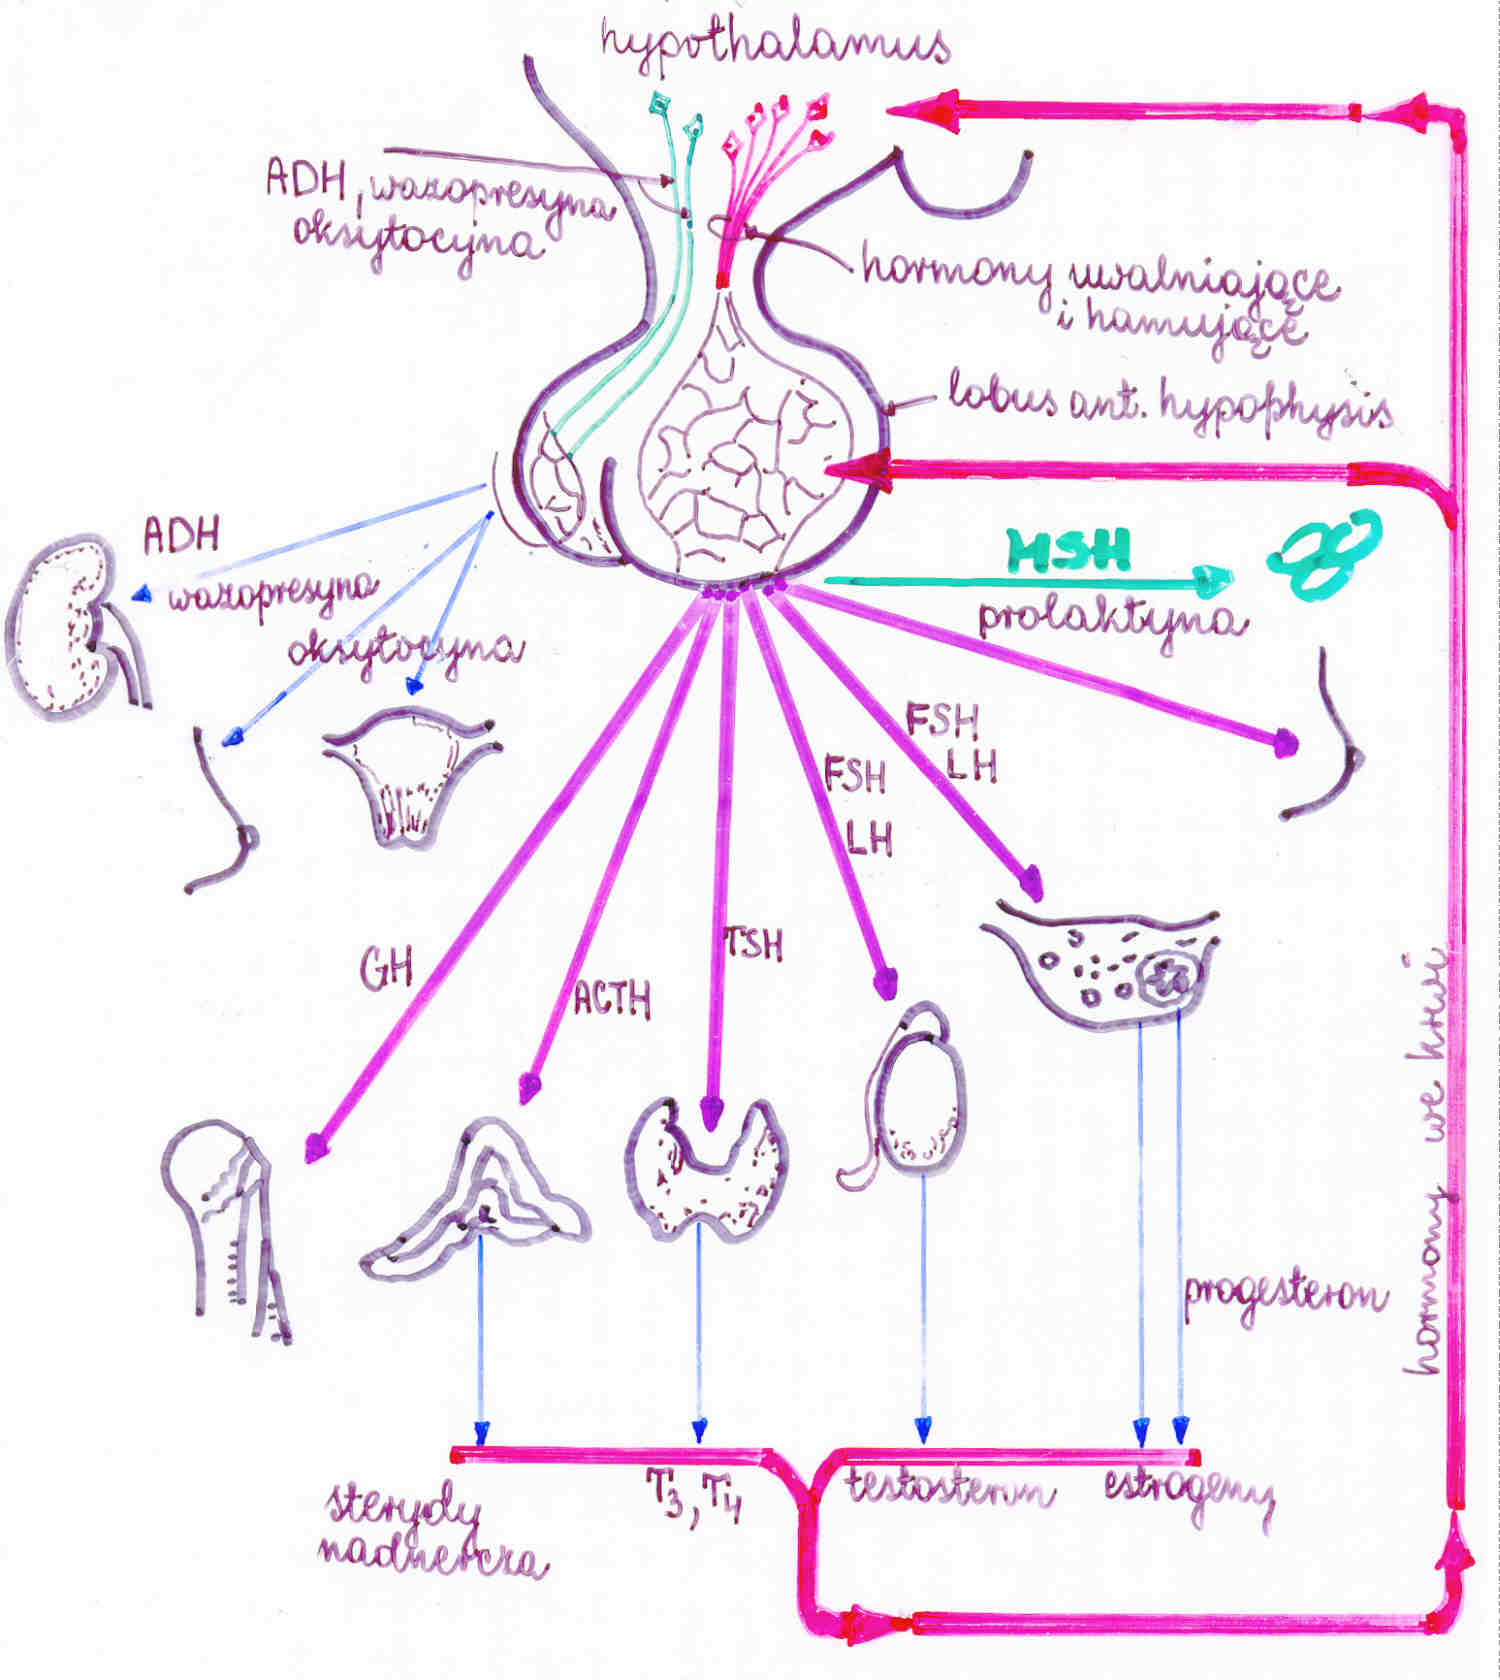 hypothalamus
ADH, wazopresyna
oksytocyna
hormony uwalniające
i hamujące
lobus ant. hypophysis
ADH
wazopresyna
oksytocyna
MSH
prolaktyna
FSH
LH
FSH
LH
GH
ACTH
TSH
progesteron
hormony we krwi
sterydy
nadnercza
T3, T4
testosteron
estrogeny